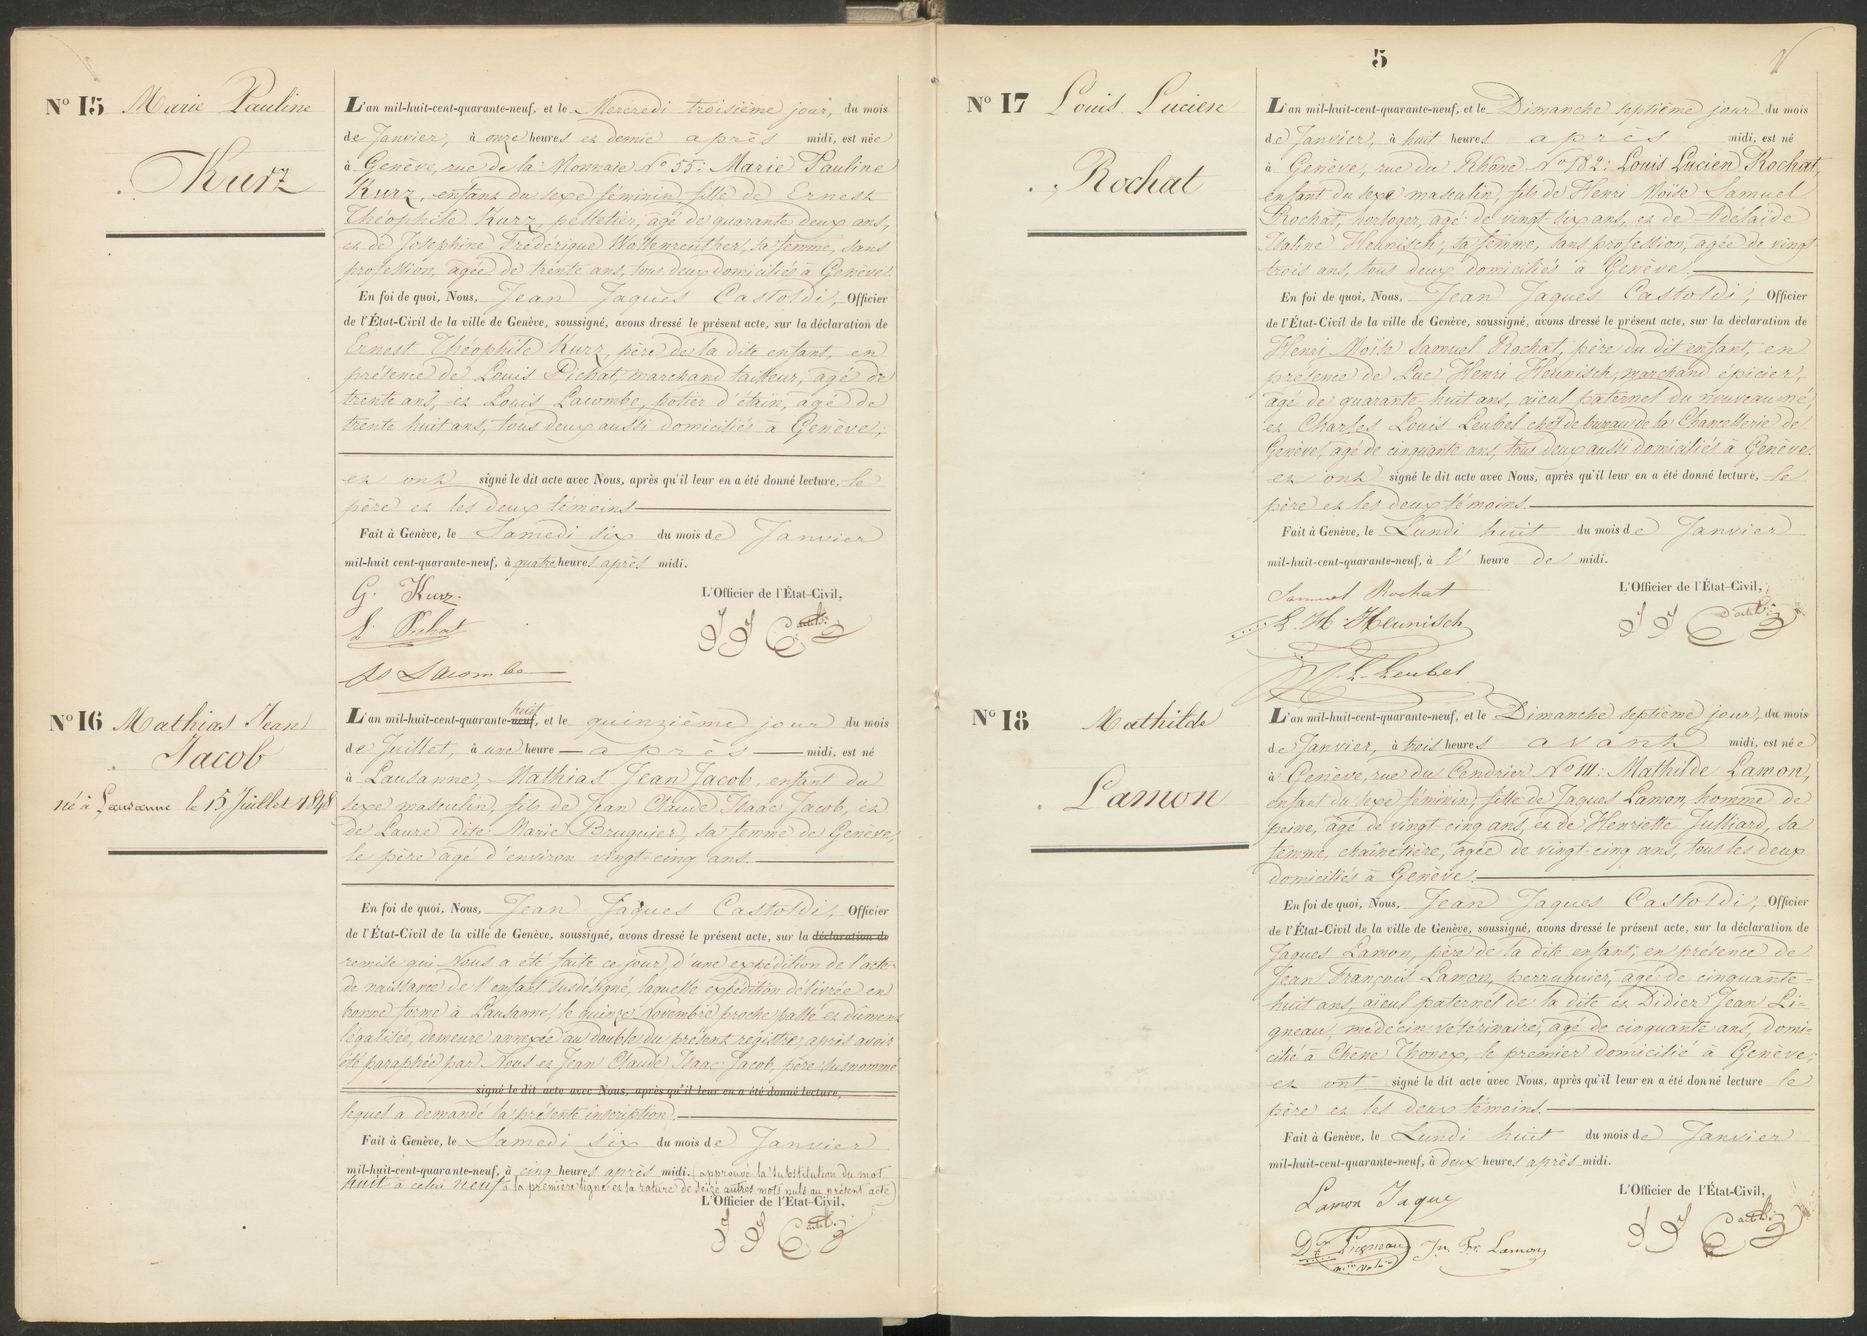 N° 15 Marie Pauline
Kurz
L'an mil-huit-cent-quarante-neuf, et le Mercredi troisième jour, du mois
de Janvier, à onze heures et demie après midi, est née
à Genève, rue de la Monnaie N° 55: Marie Pauline
Kurz, enfant du sexe féminin, fille de Ernest
Théophile Kurz, pelletier, âgé de quarante deux ans,
et de Joséphine Frédérique Wollenreuther, sa femme, sans
profession, âgée de trente ans, tous deux domiciliés à Genève.
En foi de quoi, Nous, Jean Jaques Castoldi, Officier
de l'État-Civil de la ville de Genève, soussigné, avons dressé le présent acte, sur la déclaration de
Ernest Théophile Kurz, père de la dite enfant, en
présence de Louis Pichat, marchand tailleur, âgé de
trente ans, et Louis Lacombe, potier d'étain, âgé de
trente huit ans, tous deux aussi domiciliés à Genève;
et ont signé le dit acte avec Nous, après qu'il leur en a été donné lecture, le
père et les deux témoins
Fait à Genève, le Samedi six du mois de Janvier
mil-huit cent-quarante-neuf, à quatre heures après midi.
L'Officier de l'État-Civil,
G. Kurz.
L. Pichat
Ls Lacombe
J J Castoldi
N° 16 Mathias Jean
Jacob
né à Lausanne le 15 Juillet 1848
L'an mil-huit-cent-quarante-neuf huit, et le quinzième jour du mois
de Juillet, à une heure — après — midi, est né
à Lausanne, Mathias Jean Jacob, enfant du
sexe masculin, fils de Jean Claude Isaac Jacob, et
de Laure dite Marie Bruguier, sa femme de Genève,
le père âgé d'environ vingt-cinq ans.
En foi de quoi, Nous, Jean Jaques Castoldi, Officier
de l'État-Civil de la ville de Genève, soussigné, avons dressé le présent acte, sur la déclaration de
remise qui Nous a été faite ce jour, d'une expédition de l'acte
de naissance de l'enfant susdésigné, laquelle expédition délivrée en
bonne forme à Lausanne, le quinze Novembre proche passé et dûment
légalisée, demeure annexée au double du présent registre, après avoir
été paraphée par Nous et Jean Claude Isaac Jacob, père susnommé
signé le dit acte avec Nous, après qu'il leur en a été donné lecture,
lequel a demandé la présente inscription.
Fait à Genève, le Samedi six du mois de Janvier
mil-huit-cent-quarante-neuf, à cinq heures après midi. (approuvé la substitution du mot
huit à celui neuf à la première ligne et la rature de seize autres mots nuls au présent acte)
L'Officier de l'État-Civil,
J J Castoldi
5
N° 17 Louis Lucien
Rochat
L'an mil-huit-cent-quarante-neuf, et le Dimanche septième jour du mois
de Janvier, à huit heures après midi, est né
à Genève, rue du Rhône N° 182: Louis Lucien Rochat,
enfant du sexe masculin, fils de Henri Moïse Samuel
Rochat, horloger, âgé de vingt six ans, et de Adelaïde
Italine Heunisch, sa femme, sans profession, âgée de vingt
trois ans, tous deux domiciliés à Genève.
En foi de quoi, Nous, Jean Jaques Castoldi, Officier
de l'État-Civil de la ville de Genève, soussigné, avons dressé le présent acte, sur la déclaration de
Henri Moïse Samuel Rochat, père du dit enfant, en
présence de Luc Henri Heunisch, marchand épicier,
âgé de quarante-huit ans, aïeul paternel du nouveau né,
et Charles Louis Leubel chef de bureau de la Chancellerie de
Genève, âgé de cinquante ans, tous deux aussi domiciliés à Genève.
et ont signé le dit acte avec Nous, après qu'il leur en a été donné lecture, le
père et les deux témoins.
Fait à Genève, le Lundi huit du mois de Janvier
mil-huit-cent-quarante-neuf, à l' heure de midi.
L'Officier de l'État-Civil,
Samuel Rochat
L. H. Heunisch
L. Leubel
J J Castoldi
N° 18 Mathilde
Lamon
L'an mil-huit-cent-quarante-neuf, et le Dimanche septième jour, du mois
de Janvier, à trois heures avant midi, est née
à Genève, rue du Cendrier N° 111: Mathilde Lamon,
enfant du sexe féminin, fille de Jaques Lamon, homme de
peine, âgé de vingt-cinq ans, et de Henriette Julliard, sa
femme, chaînetière, âgée de vingt-cinq ans, tous les deux
domiciliés à Genève.
En foi de quoi, Nous, Jean Jaques Castoldi, Officier
de l'État-Civil de la ville de Genève, soussigné, avons dressé le présent acte, sur la déclaration de
Jaques Lamon, père de la dite enfant, en présence de
Jean François Lamon, perruquier, âgé de cinquante-
huit ans, aïeul paternel de la dite et Didier Jean Li-
gneau, médecin vétérinaire, âgé de cinquante ans, domi-
cilié à Chêne Thonex, le premier domicilié à Genève,
et ont signé le dit acte avec Nous, après qu'il leur en a été donné lecture le
père et les deux témoins.
Fait à Genève, le Lundi huit du mois de Janvier
mil-huit-cent-quarante-neuf, à deux heures après midi.
L'Officier de l'État-Civil,
Lamon Jaque
Dr Ligneau Jn. Fr. Lamon
J J Castoldi